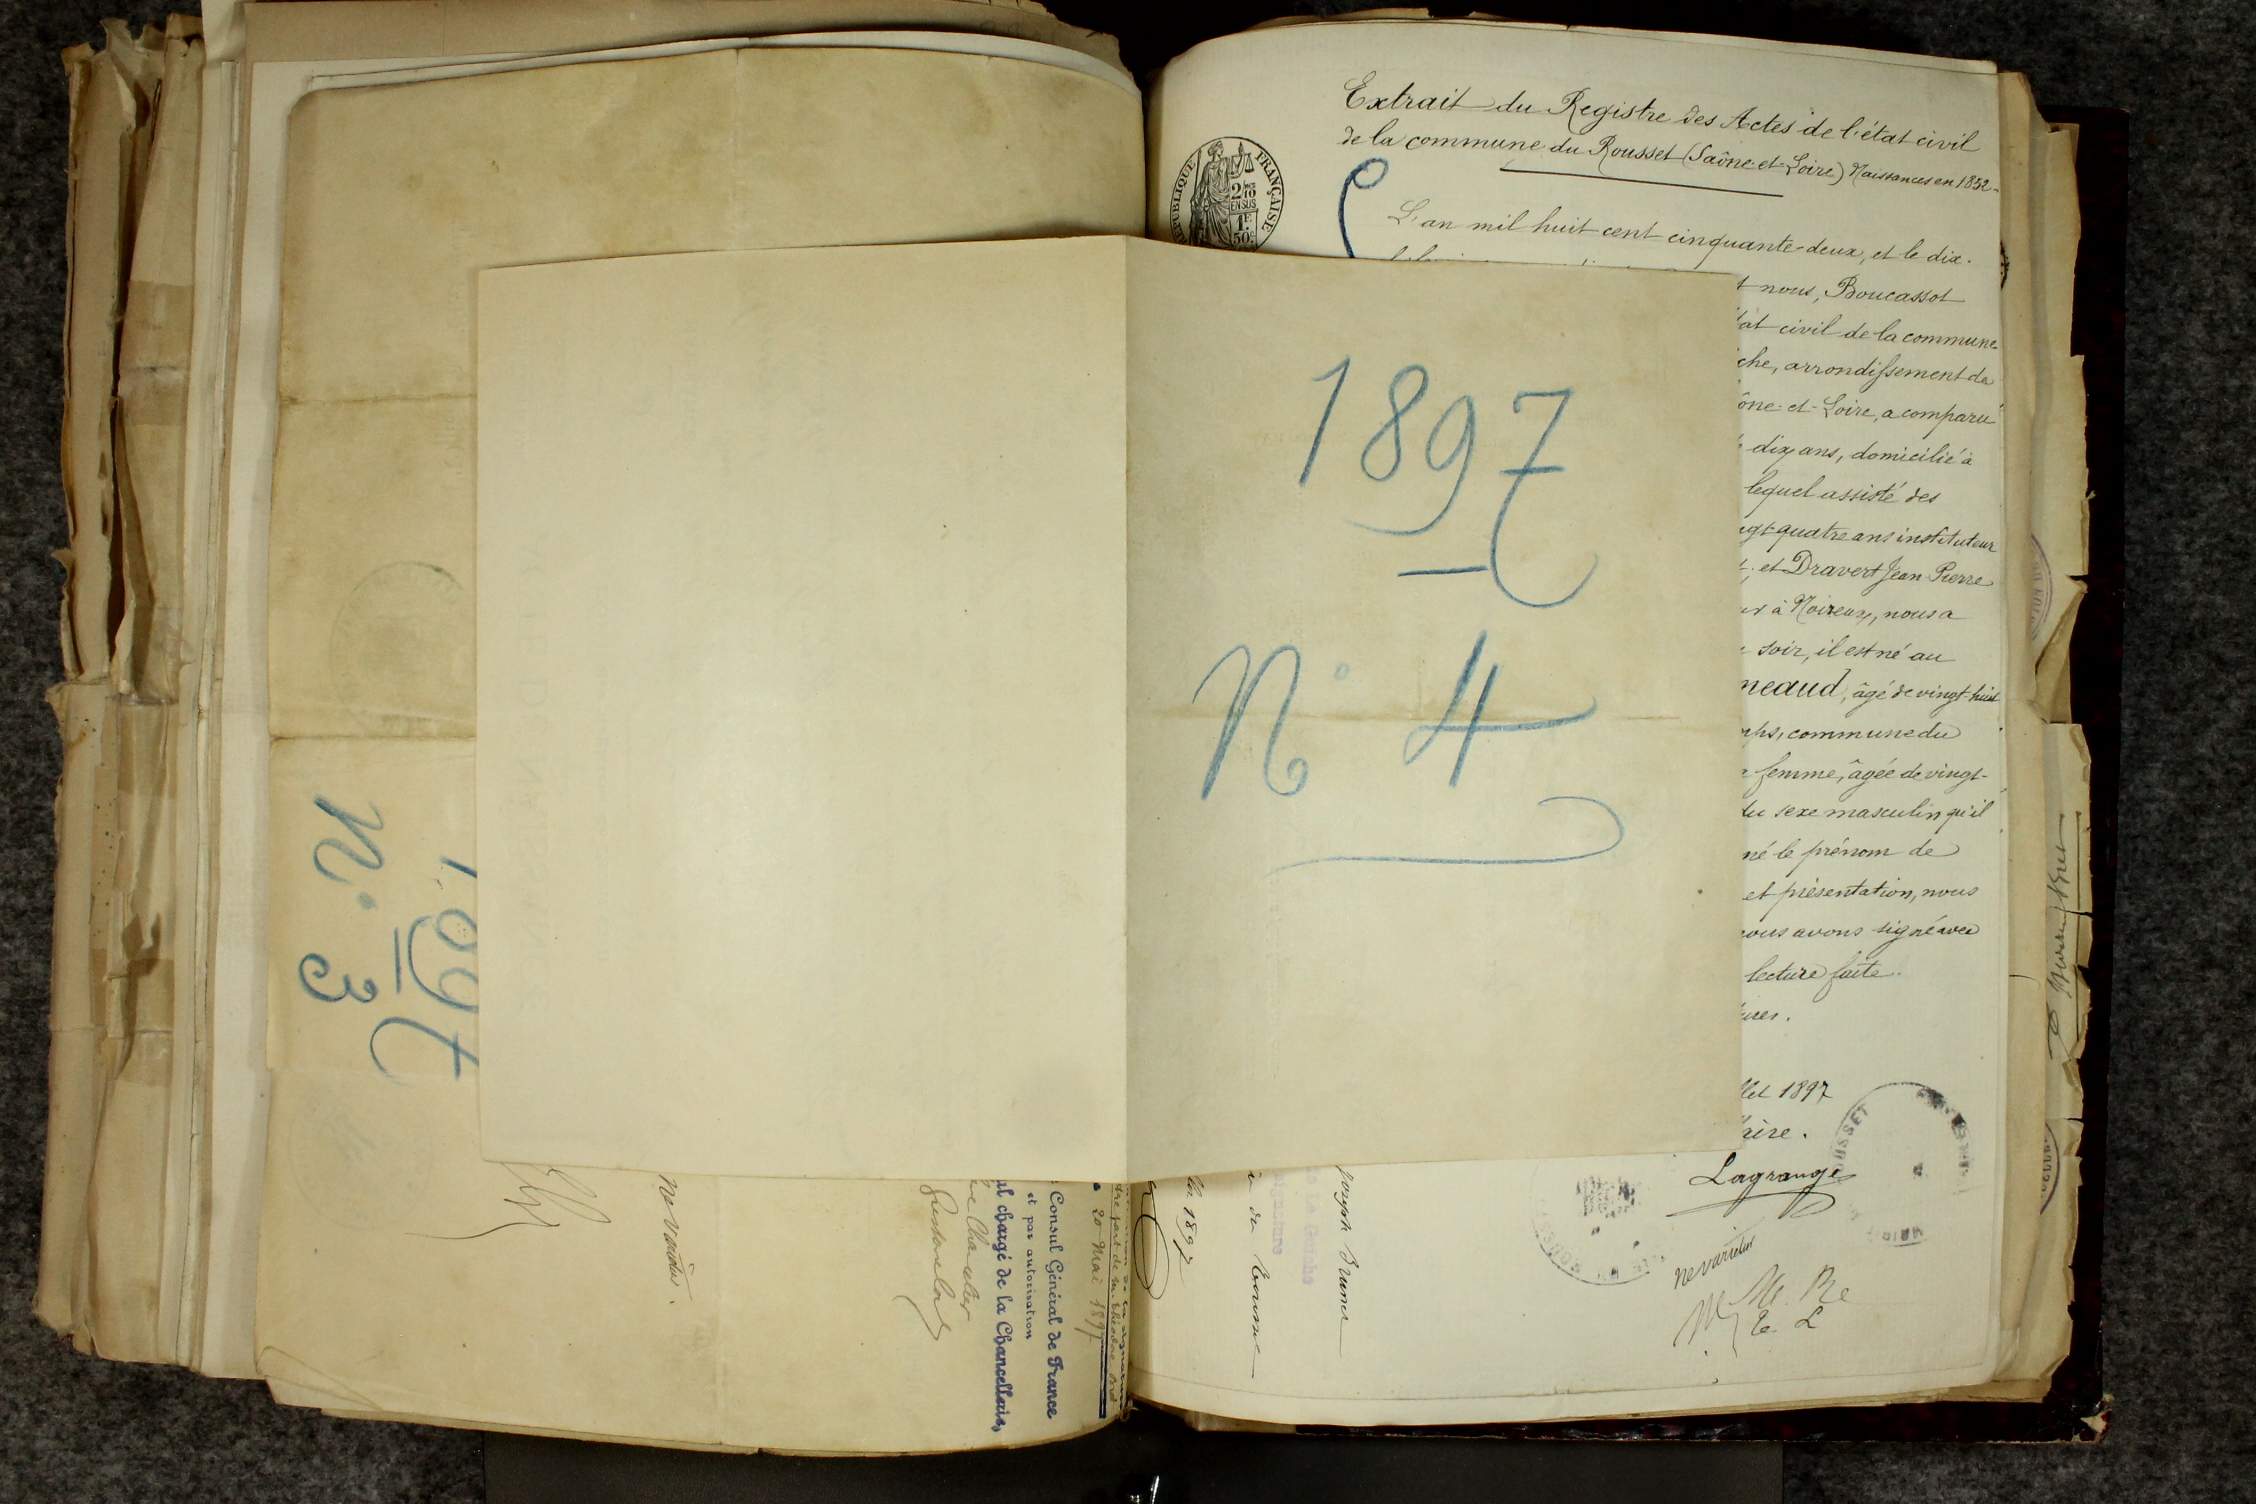 Extrait du Registre des Actes de l'état civil
de la commune du Rousset (Saône-et-Loire) Naissances en 1852
RÉPUBLIQUE FRANÇAISE
2/10
EN SUS
1F
50c
L'an mil huit cent cinquante-deux, et le dix-
nous, Boucassot
civil de la commune
che, arrondissement de
ône-et-Loire, a comparu
dix ans, domicilié à
lequel assisté des
gt-quatre ans instituteur
et Dravert Jean Pierre
à Noireux, nous a
soir, il est né au
neaud, âgé de vingt-huit
mps, commune du
femme, âgée de vingt-
du sexe masculin qu'il
né le prénom de
et présentation, nous
nous avons signé avec
lecture faite.
llet 1897
aire.
Lagrange
ne varietur
1897
N° 4
1897
N° 3
ne varietur.
20 Mai 1897
Consul Général de France
et par autorisation
chargé de la Chancellerie,
le Chancelier
1897
Joseph